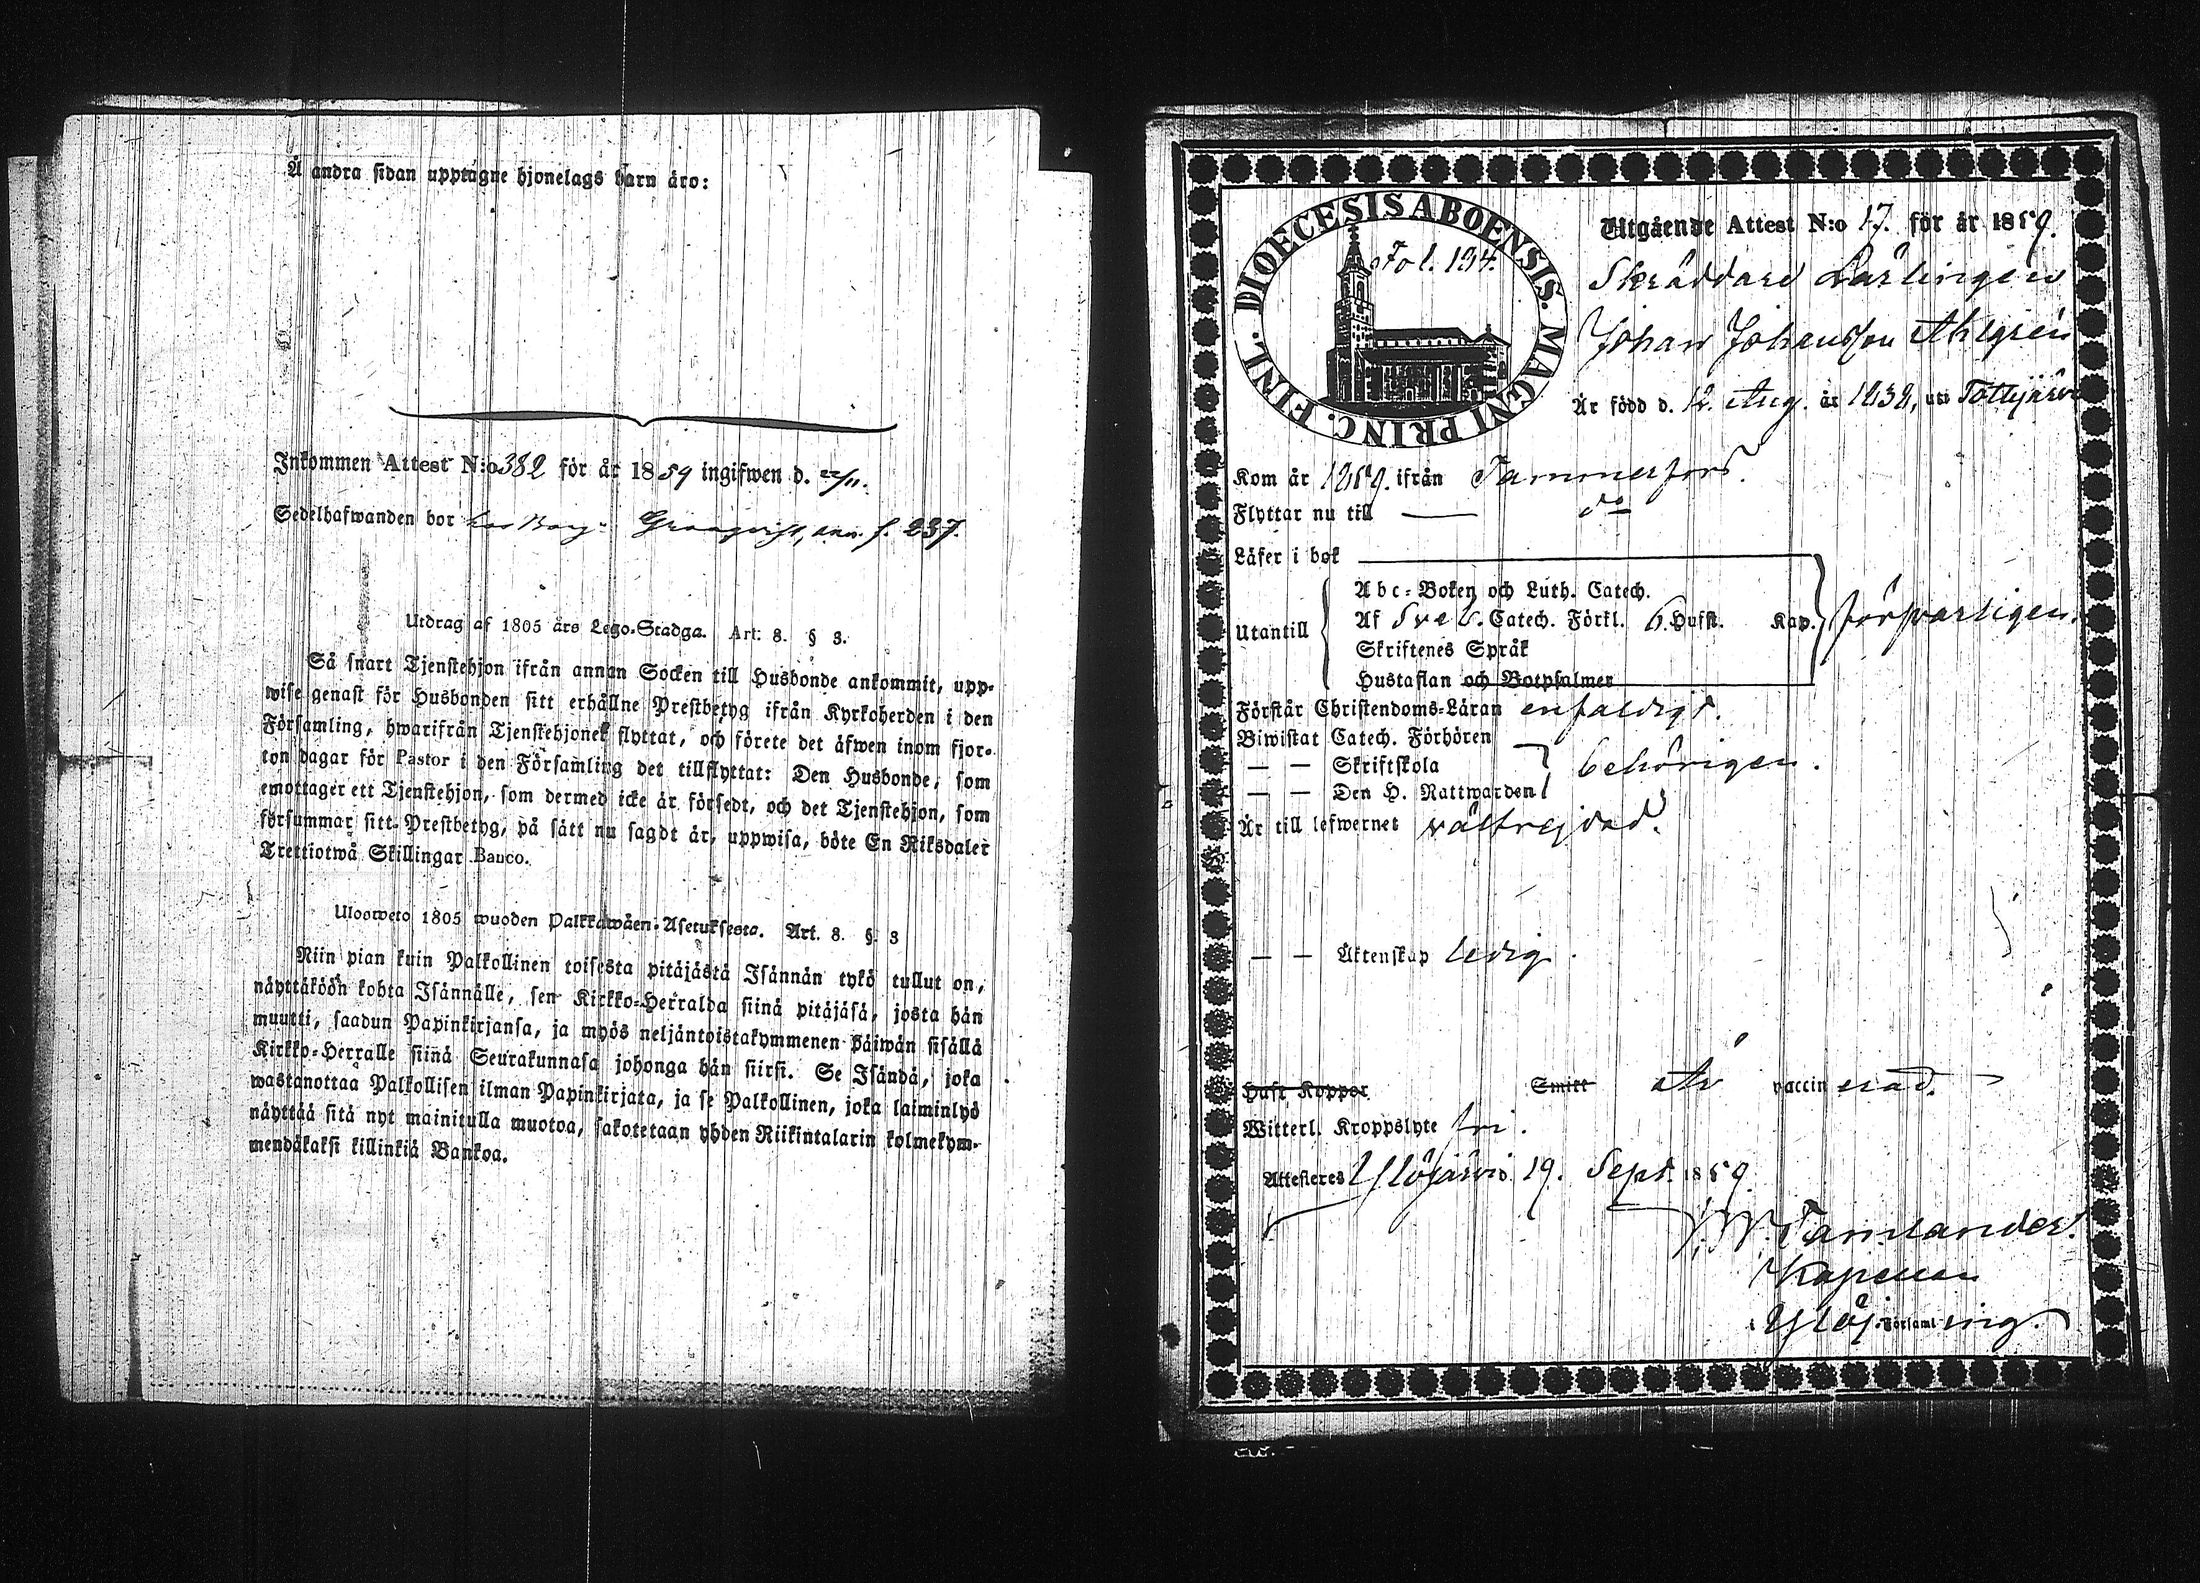 Å andra sidan upptagne hjonelags barn äro:
Inkommen Attest N:o 382 för år 1859 ingifwen d. 22/11.
Sedelhafwanden bor hos Borg. Granqvist, f. 237.
Utdrag af 1805 års Lego-Stadga. Art: 8. § 3.
Så snart Tjenstehjon ifrån annan Socken till Husbonde ankommit, upp-
wise genast för Husbonden sitt erhållne Prestbetyg ifrån Kyrkoherden i den
Församling, hwarifrån Tjenstehjonet flyttat, och förete det äfwen inom fjor-
ton dagar för Pastor i den Församling det tillflyttat: Den Husbonde, som
emottager ett Tjenstehjon, som dermed icke är försedt, och det Tjenstehjon, som
försummar sitt Prestbetyg, på sätt nu sagdt är, uppwisa, böte En Riksdaler
Trettiotwå Skillingar Banco.
Ulosweto 1805 wuoden Palkkawäen-Asetuksesta. Art. 8. §. 3
Niin pian kuin Palkollinen toisesta pitäjästä Isännän tykö tullut on,
näyttäköön kohta Isännälle, sen Kirkko-Herralda siinä pitäjäsä, josta hän
muutti, saadun Papinkirjansa, ja myös neljäntoistakymmenen päiwän sisällä
Kirkko-Herralle siinä Seurakunnasa johonga hän siirsi. Se Isändä, joka
wastanottaa Palkollisen ilman Papinkirjata, ja se Palkollinen, joka laiminlyö
näyttää sitä nyt mainitulla muotoa, sakotetaan yhden Riikintalarin kolmekym-
mendäkaksi killinkiä Bankoa.
DIOECESIS ABOENSIS. MAGNI PRINC. FINL.
Fol. 134.
Utgående Attest N:o 17. för år 1859.
Skräddare Lärlingen
Johan Johansson Ahlgrén
Är född d. 12. Aug. år 1838, uti Tottijärvi
Kom år 1859. ifrån Tammerfors.
Flyttar nu till — do
Läser i bok
Abc-Boken och Luth. Catech.
Utantill Af Sveb. Catech. Förkl. 6. Hufst. Kap. försvarligen.
Skriftenes Språk
Hustaflan och Botpsalmer
Förstår Christendoms-Läran enfaldigt.
Biwistat Catech. Förhören
— — Skriftskola behörigen.
— — Den H. Nattwarden
Är till lefwernet välfrejdad.
— — Äktenskap ledig.
Haft Koppor Smitt Är vaccinerad.
Witterl. Kroppslyte fri.
Attesteras Ylöjärvi d. 19. Sept. 1859.
Tamlander.
Kapellan
i Ylöj. Församling.